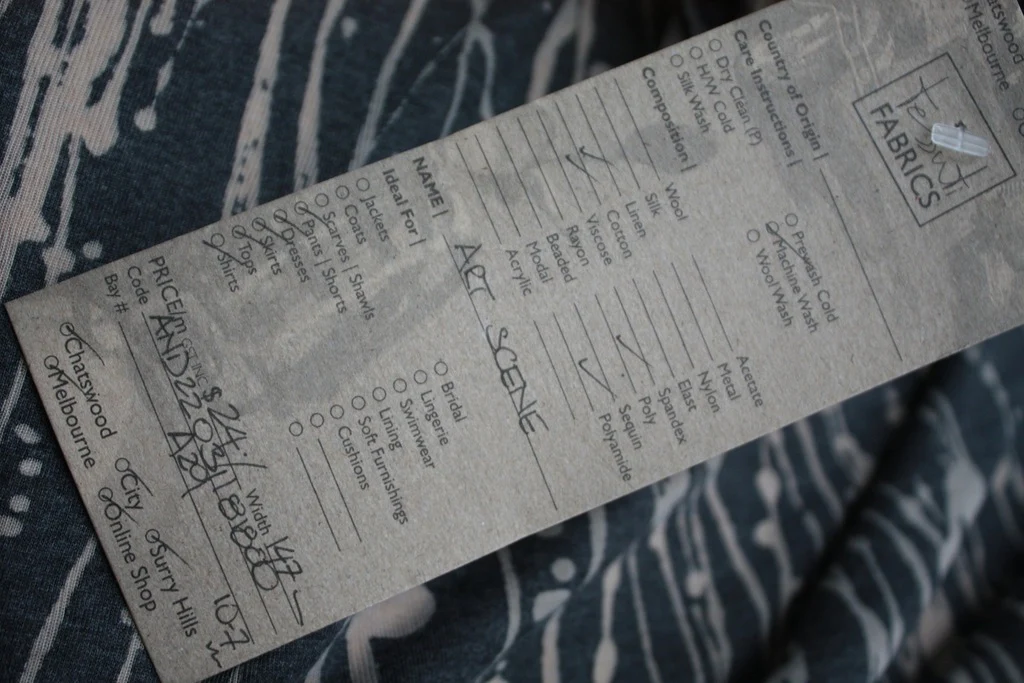 Chatswood
Melbourne
Te
FABRICS
Country of Origin |
Care Instructions |
Dry Clean (P)
H/W Cold
Silk Wash
Prewash Cold
Machine Wash
Wool Wash
Composition |
Wool
Silk
Linen
Cotton
Viscose
Rayon
Beaded
Modal
Acrylic
Acetate
Metal
Nylon
Elast
Spandex
Poly
Sequin
Polyamide
NAME | ART SCENE
Ideal For |
Jackets
Coats
Scarves | Shawls
Pants | Shorts
Dresses
Skirts
Tops
Shirts
Bridal
Lingerie
Swimwear
Lining
Soft Furnishings
Cushions
PRICE/m GST INC $24.- Width 147
Code
Bay # A20 10-7
Chatswood
Melbourne
City
Online Shop
Surry Hills